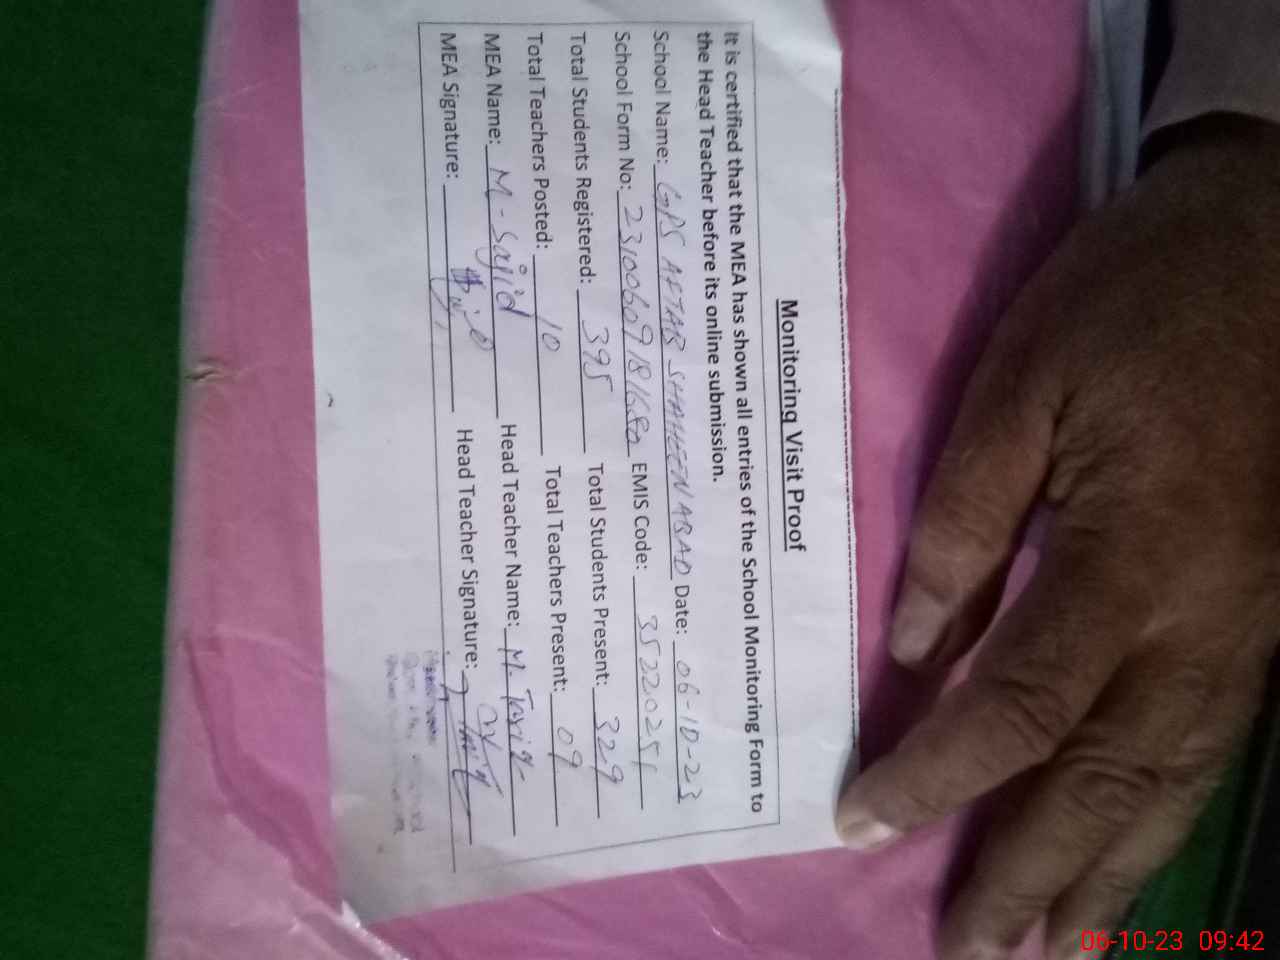 Monitoring Visit Proof
It is certified that the MEA has shown all entries of the School Monitoring Form to
the Head Teacher before its online submission.
School Name: GPS AFTAB SHAHEENABAD Date: 06-10-23
School Form No: EMIS Code: 35220251
Total Students Registered: 395 Total Students Present: 329
Total Teachers Posted: 10 Total Teachers Present: 09
MEA Name: M-Sajid Head Teacher Name: M. Tariq
MEA Signature: Head Teacher Signature:
06-10-23 09:42